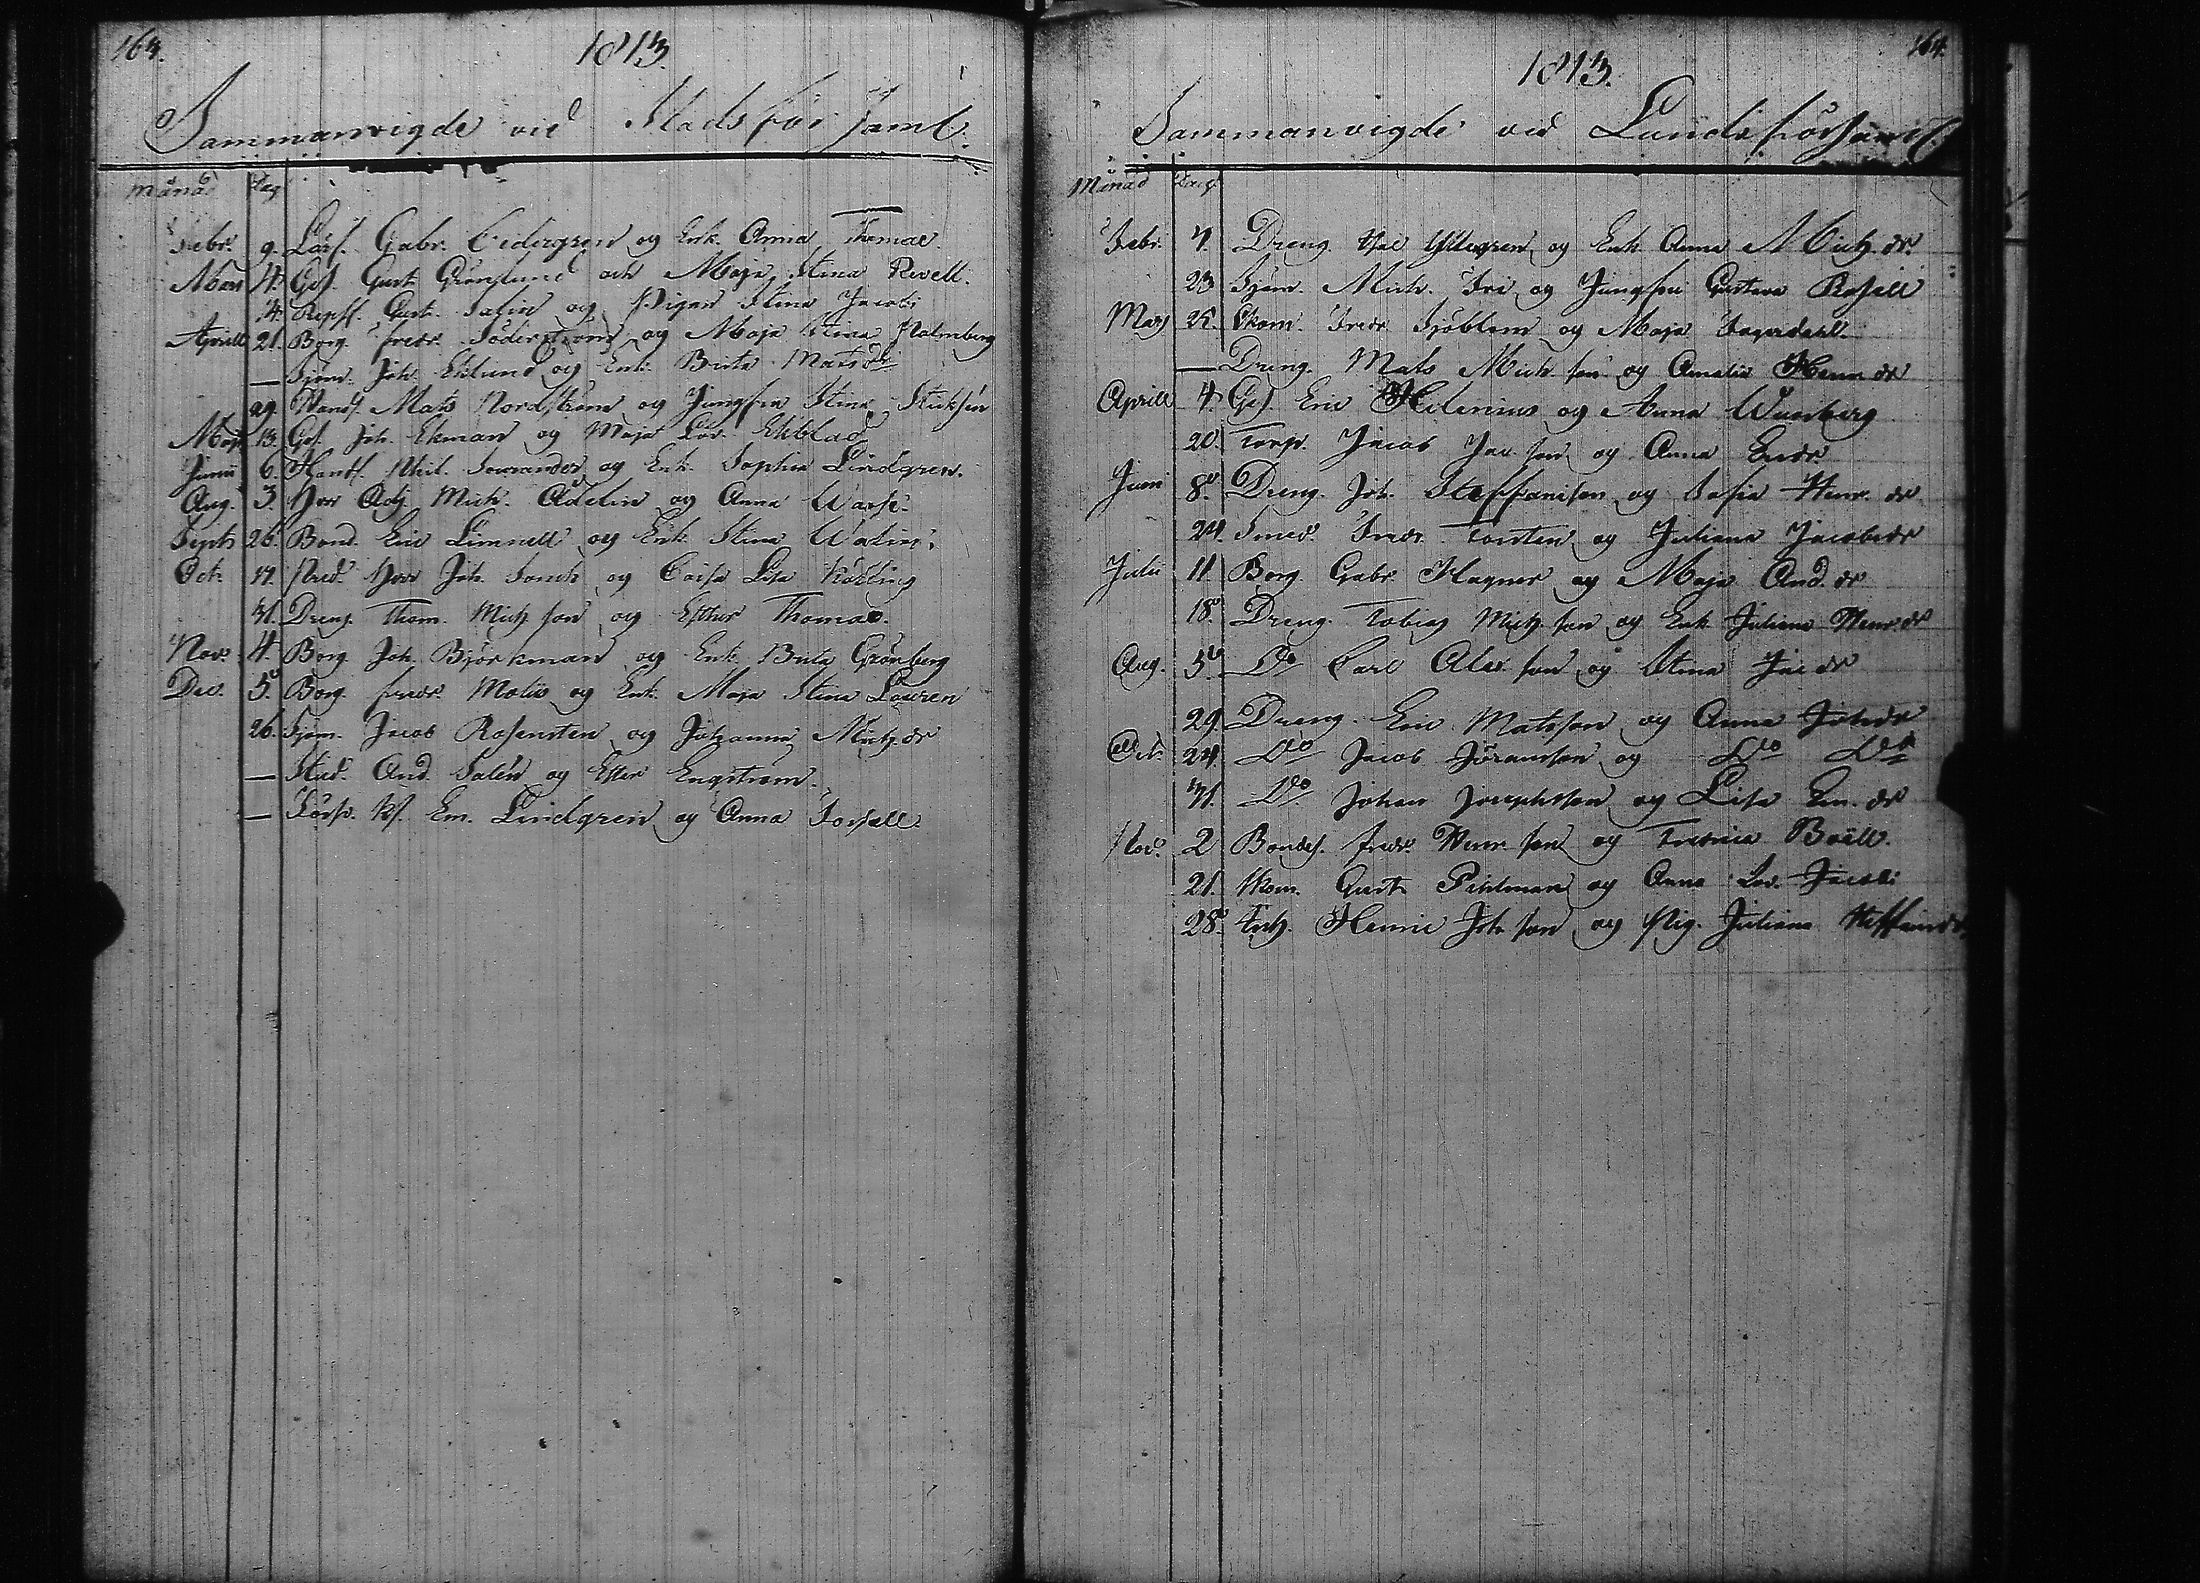 164.
1813.
Sammanvigde vid Stads församl.
Månad Dag
Febr. 9. Lärl. Gabr. Cedergren og Enk. Anna Thomae
Mars 4. Ges. Gust. Grönlund och Maja Stina Revell.
14. Repsl. Gust. Salin og Pigan Stina Jacobs
Aprill 21. Borg. Fredr. Söderström og Maja Stina Malmberg
— Sjöm. Joh. Eklund og Enk. Brita Matsdr
29. Handl. Mats Nordström og Jungfru Stina
Maj. 13. Ges. Joh. Ekman og Maja Lov. Ekblad
Junii 6. Handl. Mich. og Enk. Sophia Lindgren.
Aug. 3. Herr Adj. Mich. Adelin og Anna
Septr 26. Bond. Eric Limnell og Enk. Stina
Oct. 17. Herr Joh. og Caisa Lisa
31. Dreng. Thom. Mich. son og Esther Thomae.
Nov. 4. Borg. Joh. Björkman og Enk. Brita Grönberg
Dec. 5. Borg. Fredr. og Enk. Maja Stina Lauren
26. Sjöm. Jacob Rosensten og Johanna Mich. dr
— Stud. And. Salén og Ester Engström.
— Em. Lindgren og Anna Forsell.
164.
1813.
Sammanvigde vid Lands församl.
Månad Dag
Febr. 7. Dreng. og Enk. Anna Mich. dr.
23 Sjöm. Mich. Fri og Jungfru Gustava
Mars 25. Skom. Fredr. Sjöblom og Maja Fagerdahl.
— Dreng. Mats Mich. son og Amalia Henr. dr
Aprill 4. Ges. Eric Helenius og Anna
20. Torp. Jacob Jac. son og Anna Ericdr.
Juni 8. Dreng. Joh. Steffansson og Sofia Henr. dr
24. Smed. Fredr. og Juliana Jacobsdr
Julii 11. Borg. Gabr. Hagner og Maja And. dr
18. Dreng. Tobias Mich. son og Enk. Juliana Henr. dr
Aug. 5. Do Carl Alex. son og Stina Jac dr
29. Dreng. Eric Matsson og Anna Johsdr
Oct. 24. Do Jacob Göransson og Do Do
31. Do Johan Josephsson og Lisa Em. dr
Nov. 2 Bondes. Fredr. Henr. son og Fredrica Boëll.
21. Skom. Gust. Pihlman og Anna Lov. Jacobs
28. Henric Joh. son og Pig. Juliana Steffansdr.